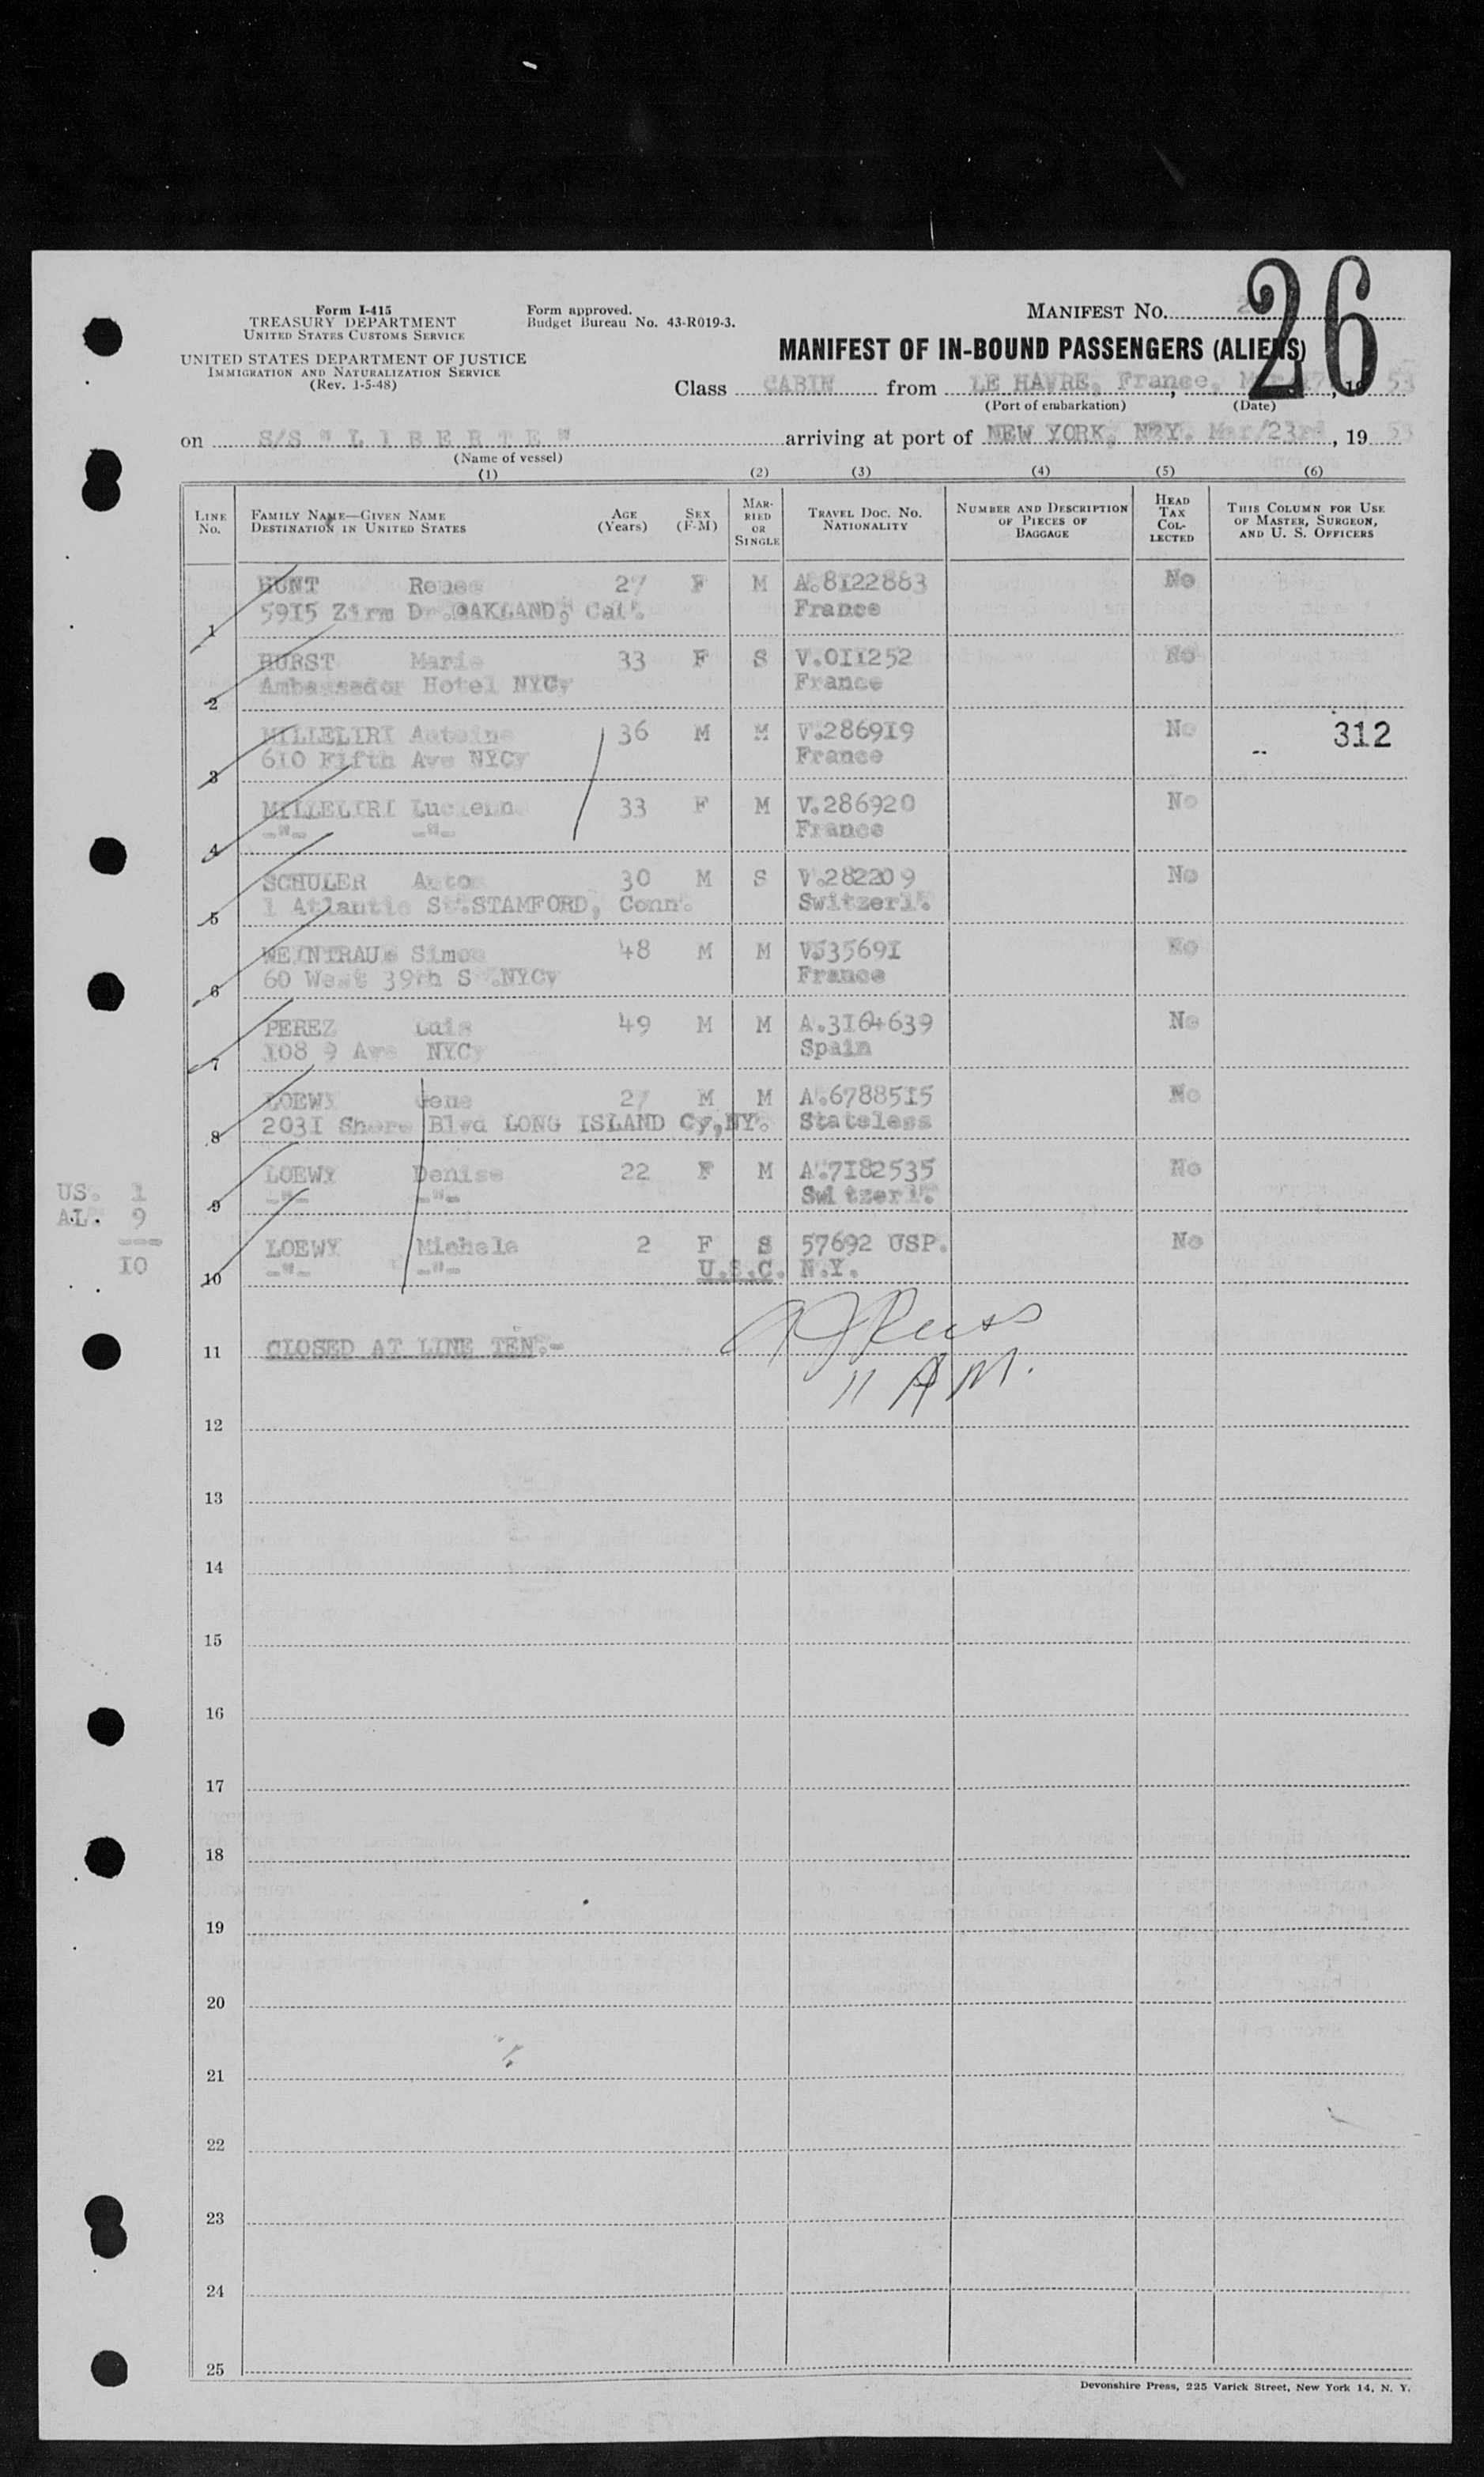 26
Form I-415
TREASURY DEPARTMENT
UNITED STATES CUSTOMS SERVICE
Form approved.
Budget Bureau No. 43-R019-3.
MANIFEST NO.
UNITED STATES DEPARTMENT OF JUSTICE
IMMIGRATION AND NATURALIZATION SERVICE
(Rev. 1-5-48)
MANIFEST OF IN-BOUND PASSENGERS (ALIENS)
Class CABIN from LE HAVRE, France, Mar/17, 19 53
(Port of embarkation) (Date)
on S/S " L I B E R T E " arriving at port of NEW YORK, N.Y. Mar/23rd, 19 53
(Name of vessel)
(1) (2) (3) (4) (5) (6)
LINE No. FAMILY NAME—GIVEN NAME DESTINATION IN UNITED STATES AGE (Years) SEX (F-M) MARRIED OR SINGLE TRAVEL DOC. NO. NATIONALITY NUMBER AND DESCRIPTION OF PIECES OF BAGGAGE HEAD TAX COLLECTED THIS COLUMN FOR USE OF MASTER, SURGEON, AND U. S. OFFICERS
HUNT Renee 27 F M A.8122883 No
1 5915 Zirm Dr.OAKLAND, Cal. France
HURST Marie 33 F S V.011252 No
2 Ambassador Hotel NYCy France
MILLELIRI Antoine 36 M M V.286919 No 312
3 610 Fifth Ave NYCy France
MILLELIRI Lucienn 33 F M V.286920 No
4 -"- -"- France
SCHULER Anton 30 M S V.282209 No
5 1 Atlantic St.STAMFORD, Conn. Switzerl.
WEINTRAUB Simon 48 M M V535691 No
6 60 West 39th St.NYCy France
PEREZ Luis 49 M M A.3164639 No
7 108 9 Ave NYCy Spain
LOEWY Gene 27 M M A.6788515 No
8 2031 Shore Blvd LONG ISLAND Cy,NY. Stateless
LOEWY Denise 22 F M A.7182535 No
9 -"- -"- Switzerl.
US. 1
AL. 9
10
LOEWY Michele 2 F S 57692 USP. No
10 -"- -"- U.S.C. N.Y.
11 CLOSED AT LINE TEN.-
11 AM.
12
13
14
15
16
17
18
19
20
21
22
23
24
25
Devonshire Press, 225 Varick Street, New York 14, N. Y.